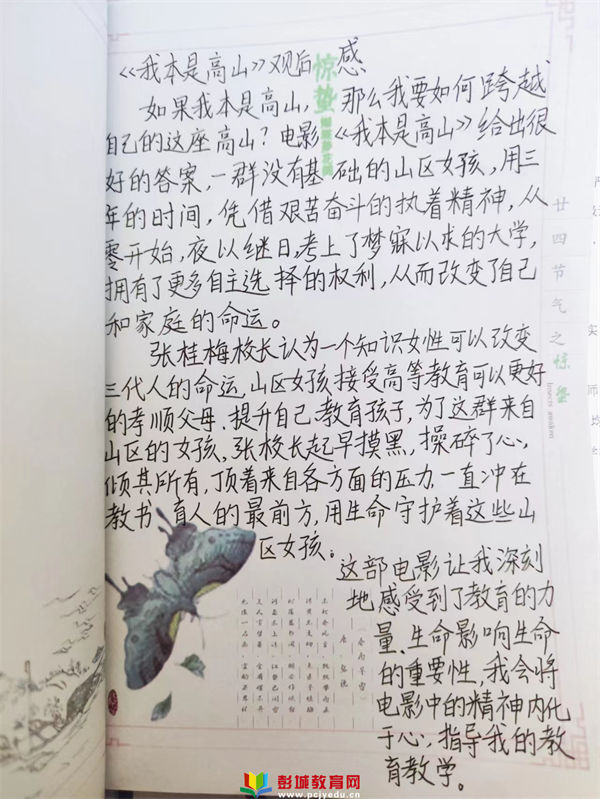 《我本是高山》观后感
如果我本是高山,那么我要如何跨越
自己的这座高山?电影《我本是高山》给出很
好的答案,一群没有基础的山区女孩,用三
年的时间,凭借艰苦奋斗的执着精神,从
零开始,夜以继日,考上了梦寐以求的大学,
拥有了更多自主选择的权利,从而改变了自己
和家庭的命运。
张桂梅校长认为一个知识女性可以改变
三代人的命运,山区女孩接受高等教育可以更好
的孝顺父母、提升自己、教育孩子,为了这群来自
山区的女孩、张校长起早摸黑,操碎了心,
倾其所有,顶着来自各方面的压力,一直冲在
教书、育人的最前方,用生命守护着这些山
区女孩。
这部电影让我深刻
地感受到了教育的力
量、生命影响生命
的重要性,我会将
电影中的精神内化
于心,指导我的教
育教学。
惊蛰
廿四节气之惊蛰
Insects awaken
彭城教育网
www.pcjyedu.cn